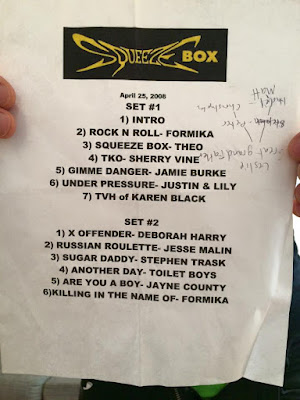 SQUEEZE BOX
April 25, 2008
SET #1
1) INTRO
2) ROCK N ROLL- FORMIKA
3) SQUEEZE BOX- THEO
4) TKO- SHERRY VINE
5) GIMME DANGER- JAMIE BURKE
6) UNDER PRESSURE- JUSTIN & LILY
7) TVH of KAREN BLACK
SET #2
1) X OFFENDER- DEBORAH HARRY
2) RUSSIAN ROULETTE- JESSE MALIN
3) SUGAR DADDY- STEPHEN TRASK
4) ANOTHER DAY- TOILET BOYS
5) ARE YOU A BOY- JAYNE COUNTY
6)KILLING IN THE NAME OF- FORMIKA
Matt
Leslie
great grandfather